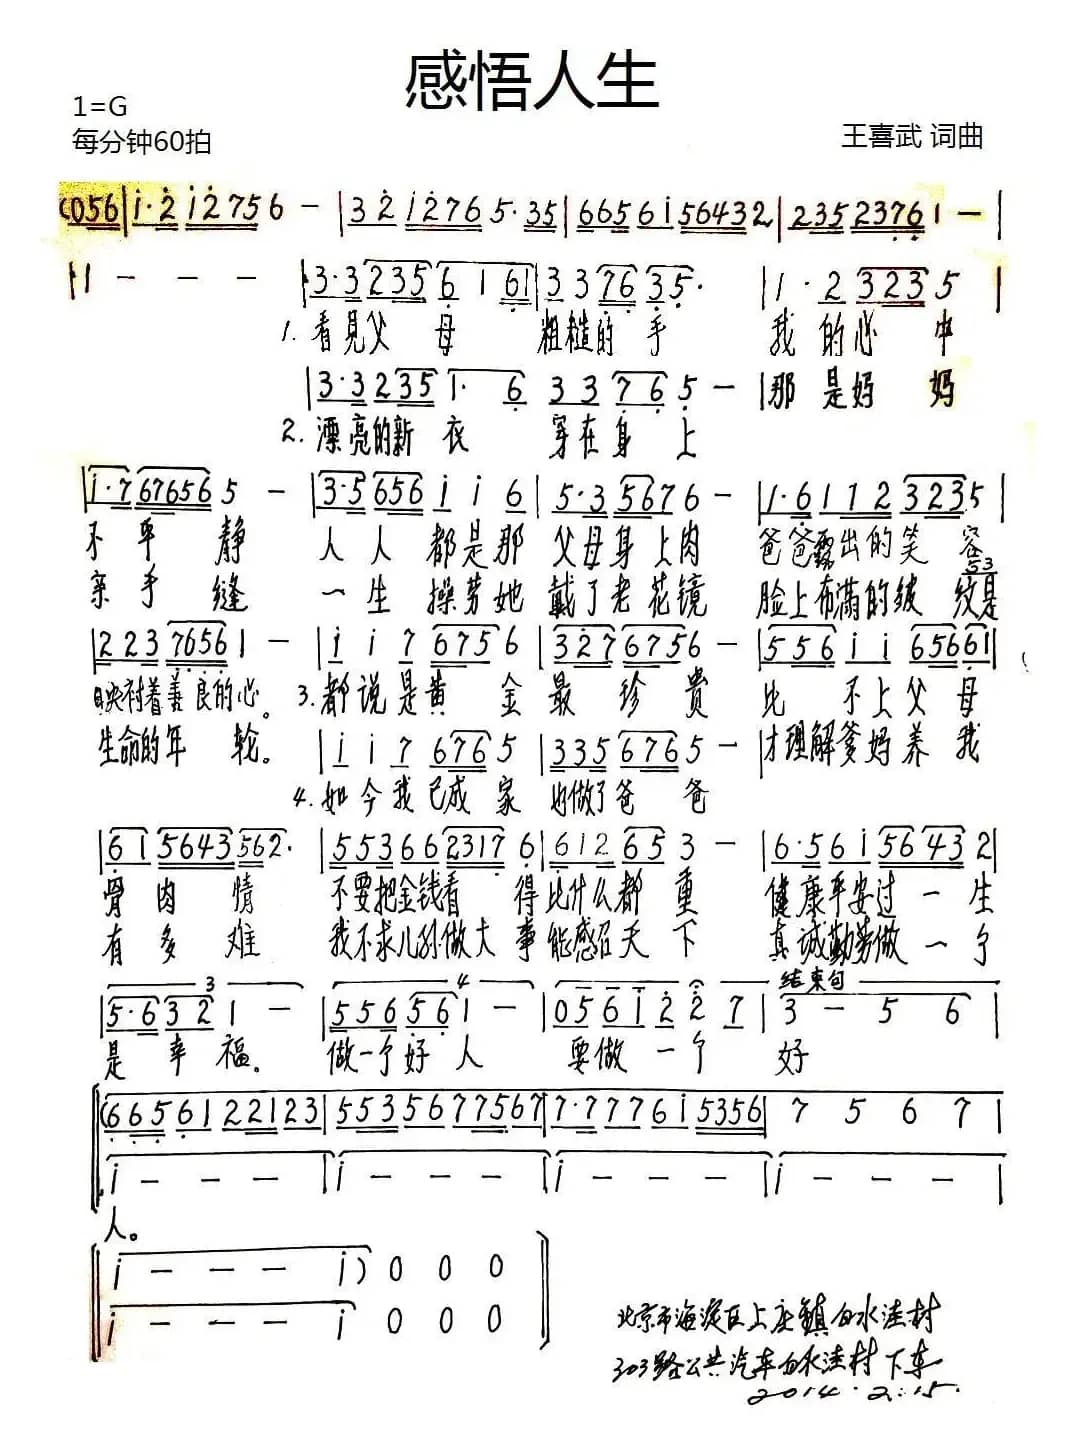 感悟人生
1=G
每分钟60拍
王喜武 词曲
(056 | i·2 i2756 - | 32 i276 5·35 | 6656i56432 | 2352376 1 - |
1 - - - | 3·3 235 6 1 61 | 33 76 3 5· | 1·2 323 5 |
1. 看見父母 粗糙的手 我的心中
3·3 235 1· 6 | 33 76 5 - | 那是妈妈
2. 漂亮的新衣 穿在身上
i·7 67656 5 - | 3·5 656 i i 6 | 5·3 567 6 - | 1·6 112 323 5 |
不平静 人人都是那父母身上肉 爸爸露出的笑容
53
亲手缝 一生操劳她戴了老花镜 脸上布满的皱纹是
223 7656 1 - | i i 7 675 6 | 327 675 6 - | 556 i i 656 61 |
映衬着善良的心。 3. 都说是黄金最珍贵 比不上父母
生命的年轮。 i i 7 676 5 | 335 676 5 - | 才理解爹妈养我
4. 如今我已成家 也做了爸爸
61 5643 562· | 553662317 6 | 612 65 3 - | 6·56i 5643 2 |
骨肉情 不要把金钱看得比什么都重 健康平安过一生
有多难 我不求儿孙做大事能感召天下 真诚勤劳做一个
3 4 结束句
5·6 32 1 - | 556 56 1 - | 056i 2 2 7 | 3 - 5 6 |
是幸福。 做一个好人 要做一个 好
(6656122123 | 5535677567 | 7·7776i5356 | 7 5 6 7 |
i - - - | i - - - | i - - - | i - - - |
人。
i - - - i) 0 0 0
i - - - i 0 0 0
北京市海淀区上庄镇白水洼村
303路公共汽车白水洼村下车
2014.2.15.